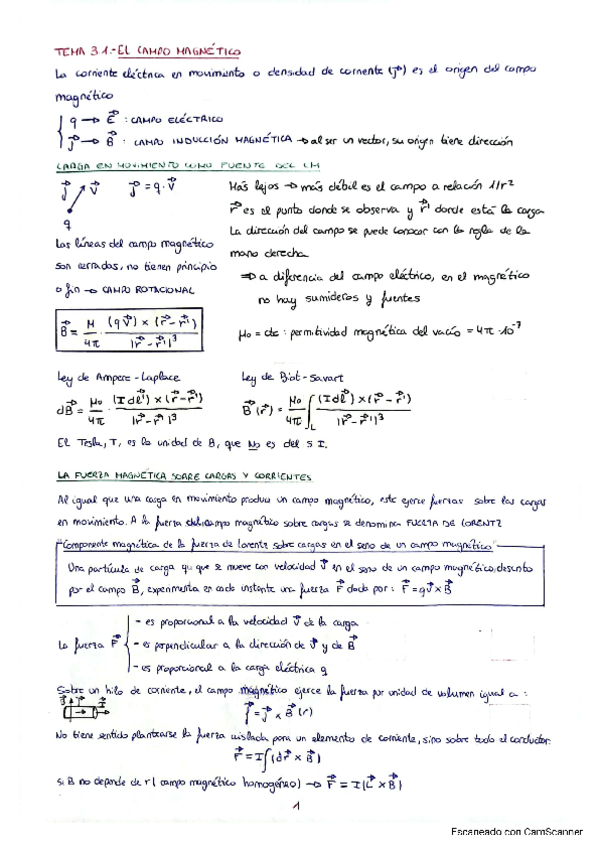 TEMA 3.1.-EL CAMPO MAGNÉTICO
La corriente eléctrica en movimiento o densidad de corriente (j⃗) es el origen del campo
magnético
q → E⃗ : CAMPO ELÉCTRICO
j⃗ → B⃗ : CAMPO INDUCCIÓN MAGNÉTICA → al ser un vector, su origen tiene dirección
CARGA EN MOVIMIENTO COMO FUENTE DEL CM
j⃗ v⃗ j⃗ = q · v⃗
q
Las líneas del campo magnético
son cerradas, no tienen principio
o fin → CAMPO ROTACIONAL
B⃗ = μ/4π · (q v⃗) × (r⃗ - r⃗')/|r⃗ - r⃗'|³
Más lejos → más débil es el campo a relación 1/r²
r⃗ es el punto donde se observa y r⃗' donde está la carga
La dirección del campo se puede conocer con la regla de la
mano derecha
⇒ a diferencia del campo eléctrico, en el magnético
no hay sumideros y fuentes
μ₀ = cte : permitividad magnética del vacío = 4π · 10⁻⁷
Ley de Ampere-Laplace
dB⃗ = μ₀/4π · (I dl⃗') × (r⃗ - r⃗')/|r⃗ - r⃗'|³
Ley de Biot-Savart
B⃗(r⃗) = μ₀/4π ∫_L (I dl⃗') × (r⃗ - r⃗')/|r⃗ - r⃗'|³
El Tesla, T, es la unidad de B, que No es del S I.
LA FUERZA MAGNÉTICA SOBRE CARGAS Y CORRIENTES
Al igual que una carga en movimiento produce un campo magnético, este ejerce fuerzas sobre las cargas
en movimiento. A la fuerza del campo magnético sobre cargas se denomina FUERZA DE LORENTZ
"Componente magnética de la fuerza de Lorentz sobre cargas en el seno de un campo magnético"
Una partícula de carga q que se mueve con velocidad v⃗ en el seno de un campo magnético, descrito
por el campo B⃗, experimenta en cada instante una fuerza F⃗ dada por: F⃗ = q v⃗ × B⃗
La fuerza F⃗
- es proporcional a la velocidad v⃗ de la carga
- es perpendicular a la dirección de v⃗ y de B⃗
- es proporcional a la carga eléctrica q
Sobre un hilo de corriente, el campo magnético ejerce la fuerza por unidad de volumen igual a :
f⃗ = j⃗ × B⃗ (r)
No tiene sentido plantearse la fuerza aislada para un elemento de corriente, sino sobre todo el conductor.
F⃗ = I ∫(dr⃗ × B⃗)
si B no depende de r (campo magnético homogéneo) → F⃗ = I (L⃗ × B⃗)
1
Escaneado con CamScanner